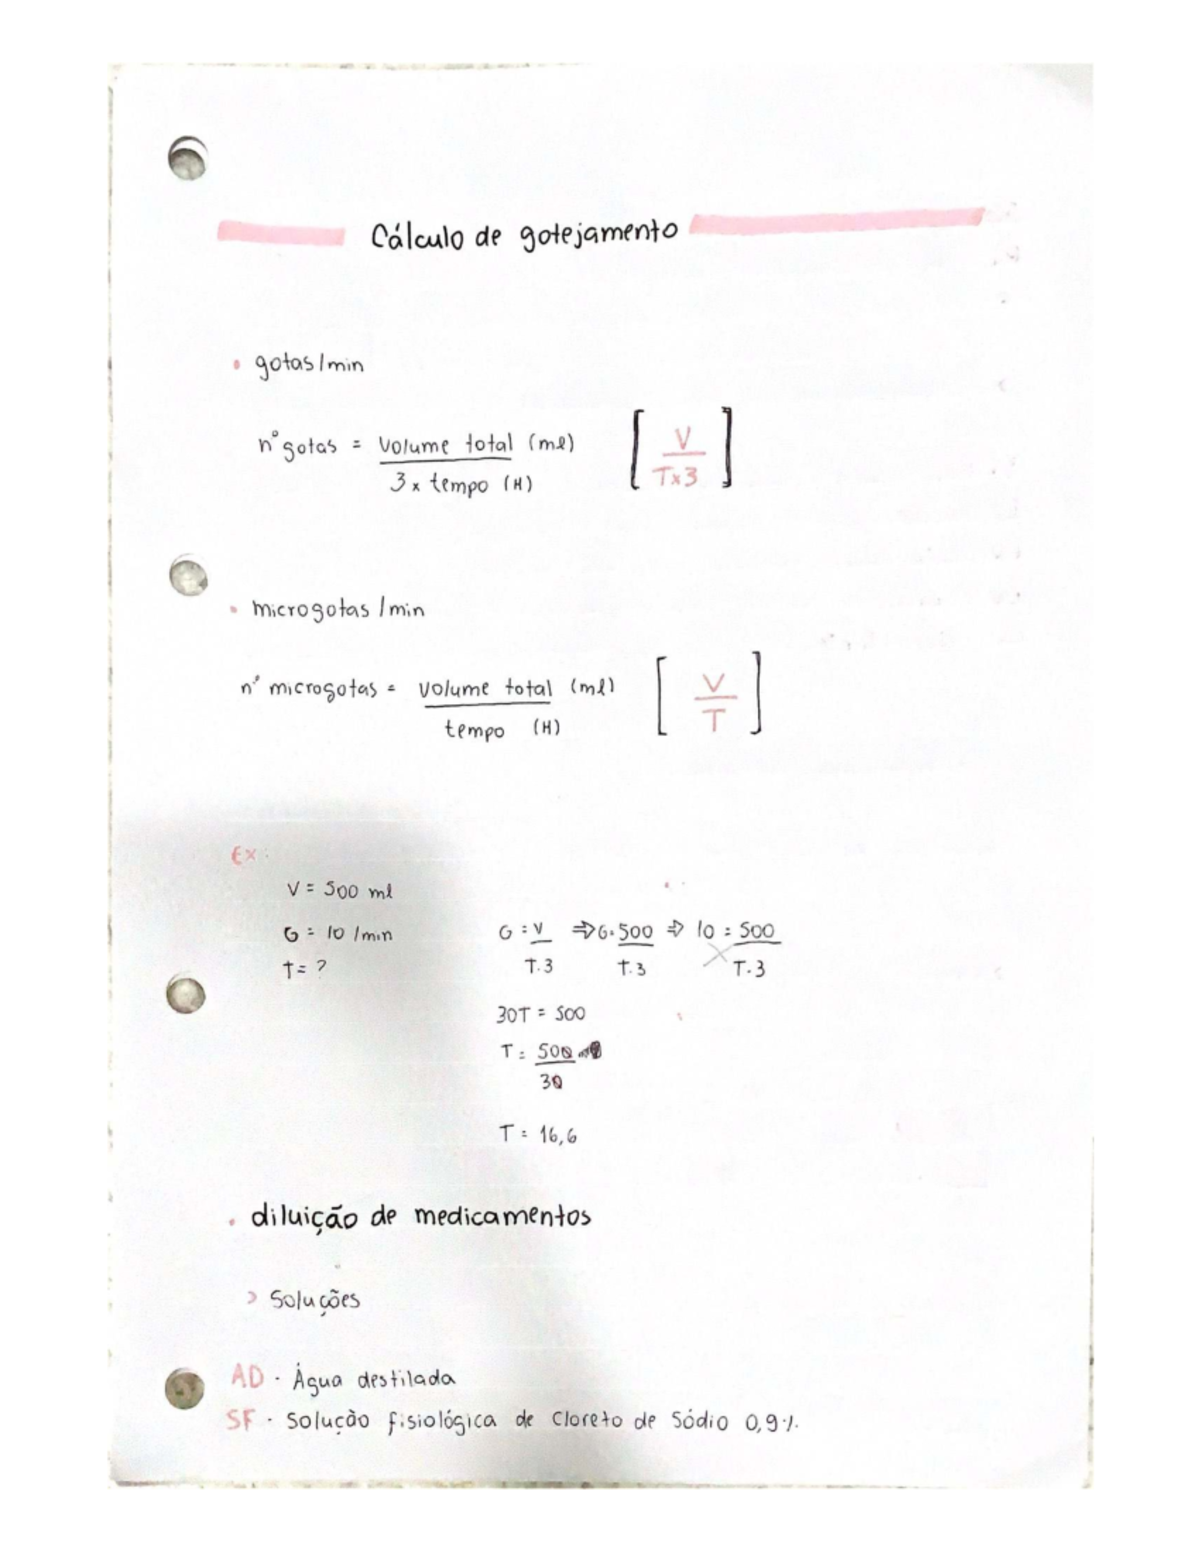 Cálculo de gotejamento
• gotas/min
nº gotas = Volume total (ml) [ V ]
3 x tempo (H) Tx3
• microgotas/min
nº microgotas = volume total (ml) [ V ]
tempo (H) T
Ex:
V = 500 ml
G = 10 /min G = V ⇒ G = 500 ⇒ 10 = 500
T = ? T.3 T.3 T.3
30T = 500
T = 500
30
T = 16,6
• diluição de medicamentos
> Soluções
AD · Água destilada
SF · Solução fisiológica de Cloreto de Sódio 0,9%.